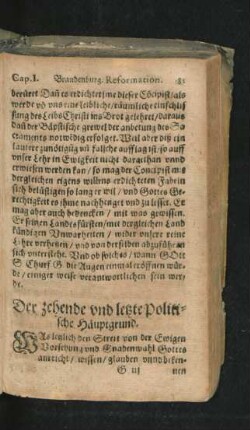 Cap. I. Brandenburg. Reformation.
berüret Dañ es erdichtet jme dieser Concipist / als
werde võ vns eine leibliche / räumliche einschlies
sung des Leibs Christi ins Brot gelehret / daraus
dañ der Bäpstische grewel der anbetung des Sa
craments notwẽdig erfolget. Weil aber diß ein
lauter ungründiger vñ falsche aufflag ist / so auff
vnser Lehr in Ewigkeit nicht dargethan vnnd
erwiesen werden kan / so mag der Concipist jm̃
dergleichen eigens willens erdichteten Fabeln
sich belüstigen so lang er wil / vnd Gottes Ge-
rechtigkeit es ihme nachhinget vnd zulesset. Er
mag aber auch bedencken / mit was gewissen
Er seinen Landesfürsten / mit dergleichen Land
kündigen Vnwarheiten / wider vnsere reine
Lehr verhetzen / vnd von derselben abzuführen
sich vnterstehe. Vnd ob solches / wann GOtt
S. Churf. G. die Augen einmal eröffnen wür-
de / einiger weise verantwortlich sein wer-
de.
Der zehende vnd letzte Politi-
sche Häuptgrund.
WAs lenlich den Streit von der Ewigen
Vorsehung vnd Gnadenwahl Gottes
antricht / wissen / glauben vnd beken-
G iij nen